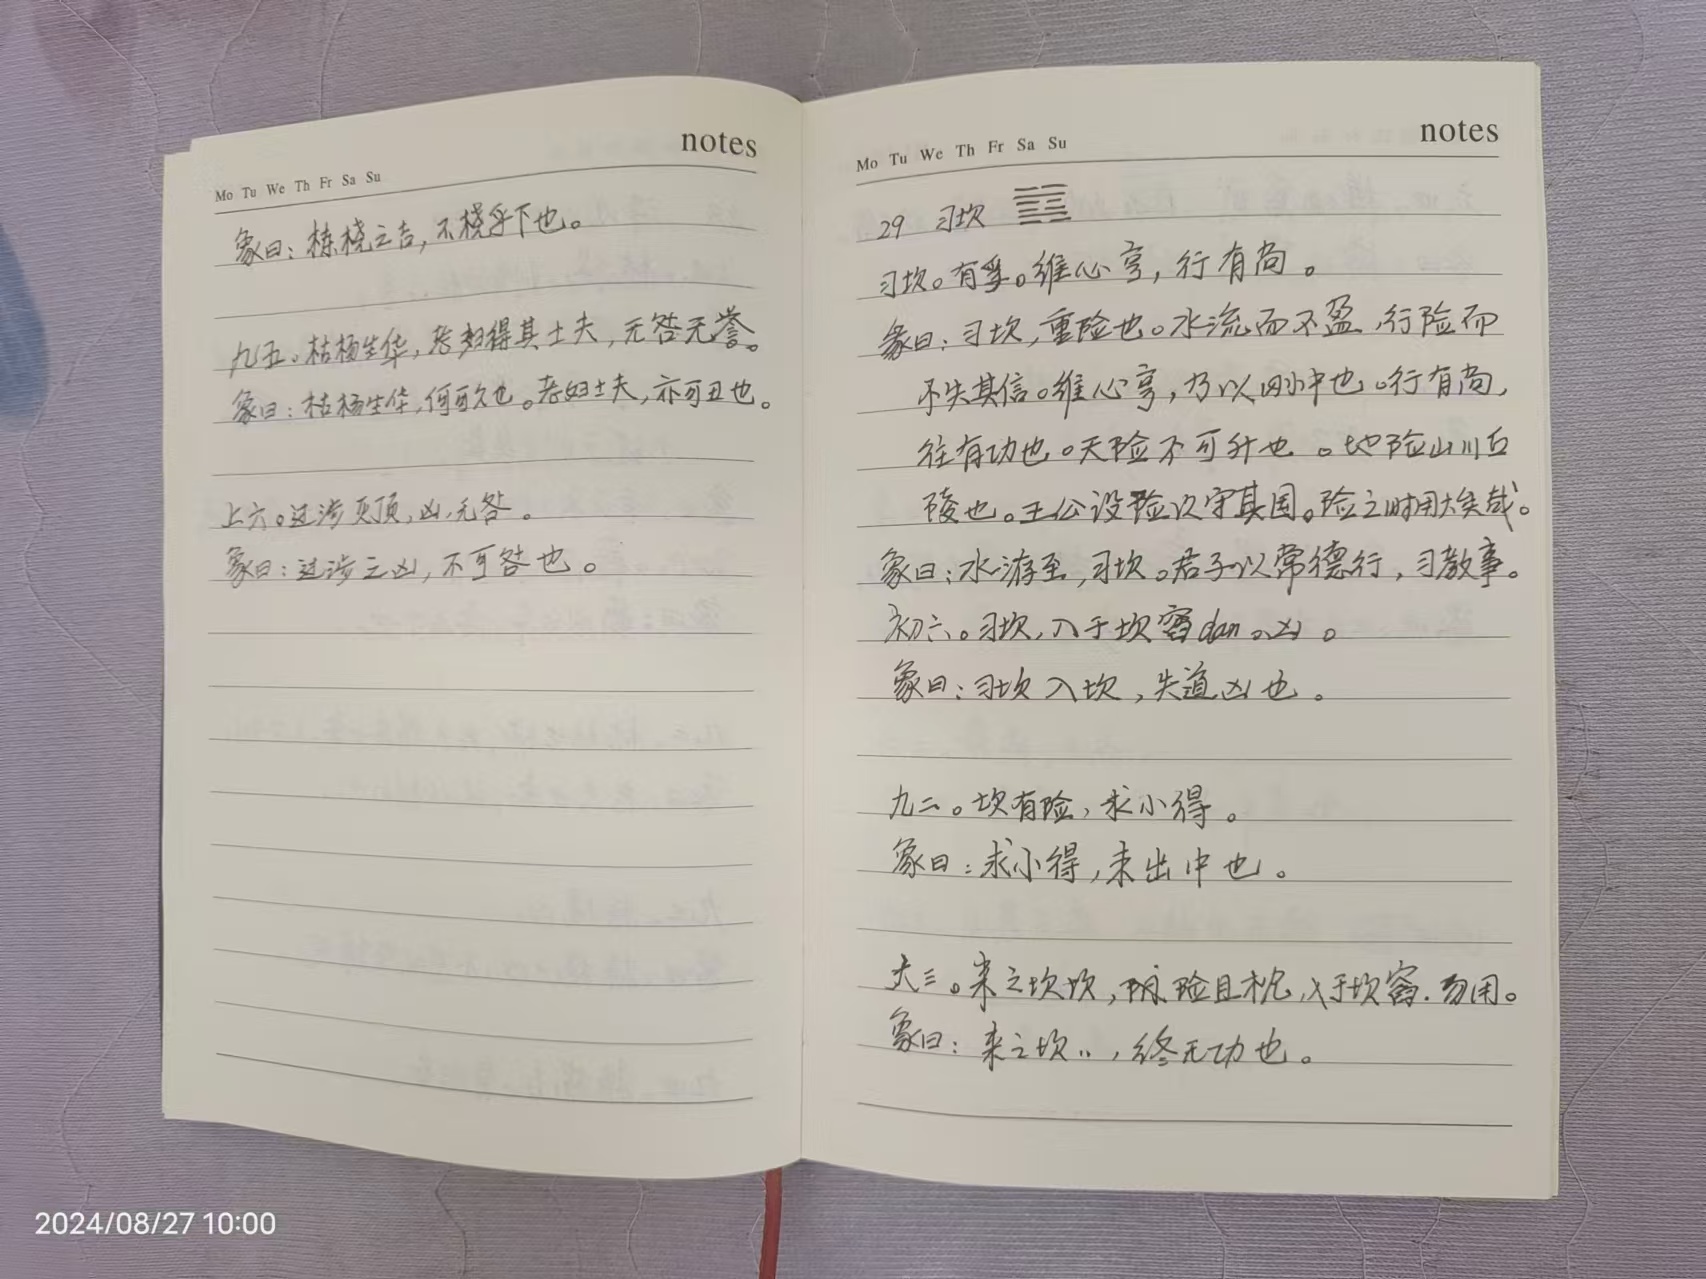 notes
Mo Tu We Th Fr Sa Su
象曰：栋桡之吉，不桡乎下也。
九五。枯杨生华，老妇得其士夫，无咎无誉。
象曰：枯杨生华，何可久也。老妇士夫，亦可丑也。
上六。过涉灭顶，凶，无咎。
象曰：过涉之凶，不可咎也。
notes
Mo Tu We Th Fr Sa Su
29 习坎
习坎。有孚。维心亨，行有尚。
彖曰：习坎，重险也。水流而不盈，行险而
不失其信。维心亨，乃以刚中也。行有尚，
往有功也。天险不可升也。地险山川丘
陵也。王公设险以守其国。险之时用大矣哉。
象曰：水游至，习坎。君子以常德行，习教事。
初六。习坎，入于坎窞dan。凶。
象曰：习坎入坎，失道凶也。
九二。坎有险，求小得。
象曰：求小得，未出中也。
六三。来之坎坎，险且枕，入于坎窞，勿用。
象曰：来之坎〃，终无功也。
2024/08/27 10:00